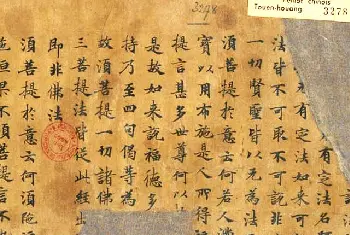 Pelliot chinois
Touen-houang 3278
3278
有定法名
有定法如來可
法皆不可取不可說非
一切賢聖皆以无為法
須菩提於意云何若人滿
寶以用布施是人所得
提言甚多世尊何以
是故如來說福德多
持乃至四句偈等為
故須菩提一切諸佛
三菩提法皆從此經出
即非佛法
須菩提於意云何須陀
洹果不須菩提言不